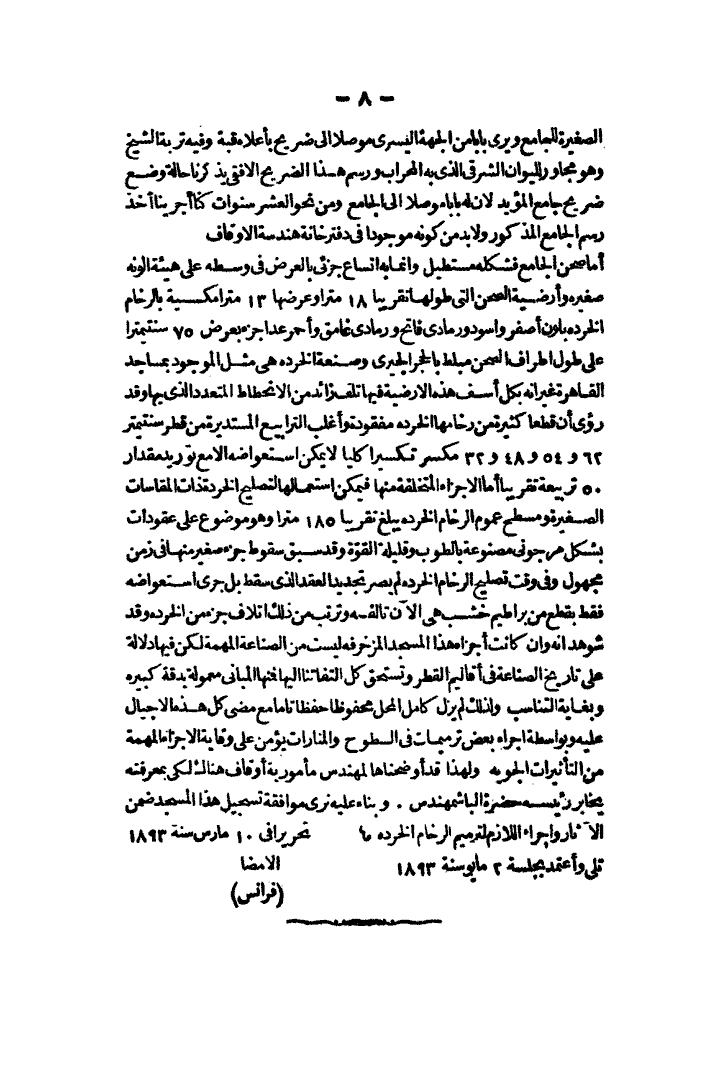 - ٨ -
الصغيرة للجامع ويرى بابا من الجهة اليسرى موصلا الى ضريح بأعلاه قبة وفيه تربة الشيخ
وهو مجاور لليوان الشرقى الذى به المحراب ورسم هذا الضريح الافقى يذكرنا حالة وضع
ضريح جامع المؤيد لان له بابا موصلا الى الجامع ومن نحو العشر سنوات كنا أجرينا أخذ
رسم الجامع المذكور ولابد من كونه موجودا فى دفترخانة هندسة الاوقاف
أما صحن الجامع فشكله مستطيل وانما به اتساع جزئى بالعرض فى وسطه على هيئة الونه
صغيره وأرضية الصحن التى طولها تقريبا ١٨ مترا وعرضها ١٣ مترا مكسية بالرخام
الخرده بلون أصفر واسود ورمادى فاتح ورمادى غامق وأحمر عدا جزء بعرض ٧٥ سنتيمترا
على طول اطراف الصحن مبلط بالحجر الجيرى وصنعة الخرده هى مثل الموجود بمساجد
القاهرة غير انه بكل أسف هذه الارضية فيها تلف زائد من الانحطاط المتعدد الذى بها وقد
رؤى أن قطعا كثيرة من رخامها الخرده مفقودة وأغلب الترابيع المستديرة من قطر سنتيمتر
٦٢ و ٥٤ و ٤٨ و ٣٢ مكسر تكسيرا كليا لا يمكن استعواضه الا مع توريد مقدار
٥٠ تربيعة تقريبا أما الاجزاء المتخلقة منها فيمكن استعمالها لتصليح الخردة ذات المقاسات
الصغيرة ومسطح عموم الرخام الخرده يبلغ تقريبا ١٨٥ مترا وهو موضوع على عقودات
بشكل هرجونى مصنوعة بالطوب وقليلة القوة وقد سبق سقوط جزء صغير منها فى زمن
مجهول وفى وقت تصليح الرخام الخرده لم يصر تجديد العقد الذى سقط بل جرى استعواضه
فقط بقطع من براطيم خشب هى الآن تالفه وترتب من ذلك اتلاف جزء من الخرده وقد
شوهد انه وان كانت أجزاء هذا المسجد المزخرفه ليست من الصناعة المهمة لكن فيها دلالة
على تاريخ الصناعة فى أقاليم القطر وتستحق كل التفاتنا اليها فهنا المبانى معمولة بدقة كبيره
وبغاية التناسب ولذلك لم يزل كامل المحل محفوظا حفظا تاما مع مضى كل هذه الاجيال
عليه وبواسطة اجراء بعض ترميمات فى السطوح والمنارات يؤمن على وقاية الاجزاء المهمة
من التأثيرات الجويه ولهذا قد أوضحنا هالمهندس مأمورية أوقاف هنالك لكى بمعرفته
يخابر رئيسه حضرة الباشمهندس . وبناء عليه نرى موافقة تسجيل هذا المسجد ضمن
الآثار واجراء اللازم لترميم الرخام الخرده تحريرا فى ١٠ مارس سنة ١٨٩٣
تلى وأعتمد بجلسة ٢ مايو سنة ١٨٩٣ الامضا
(فرانس)